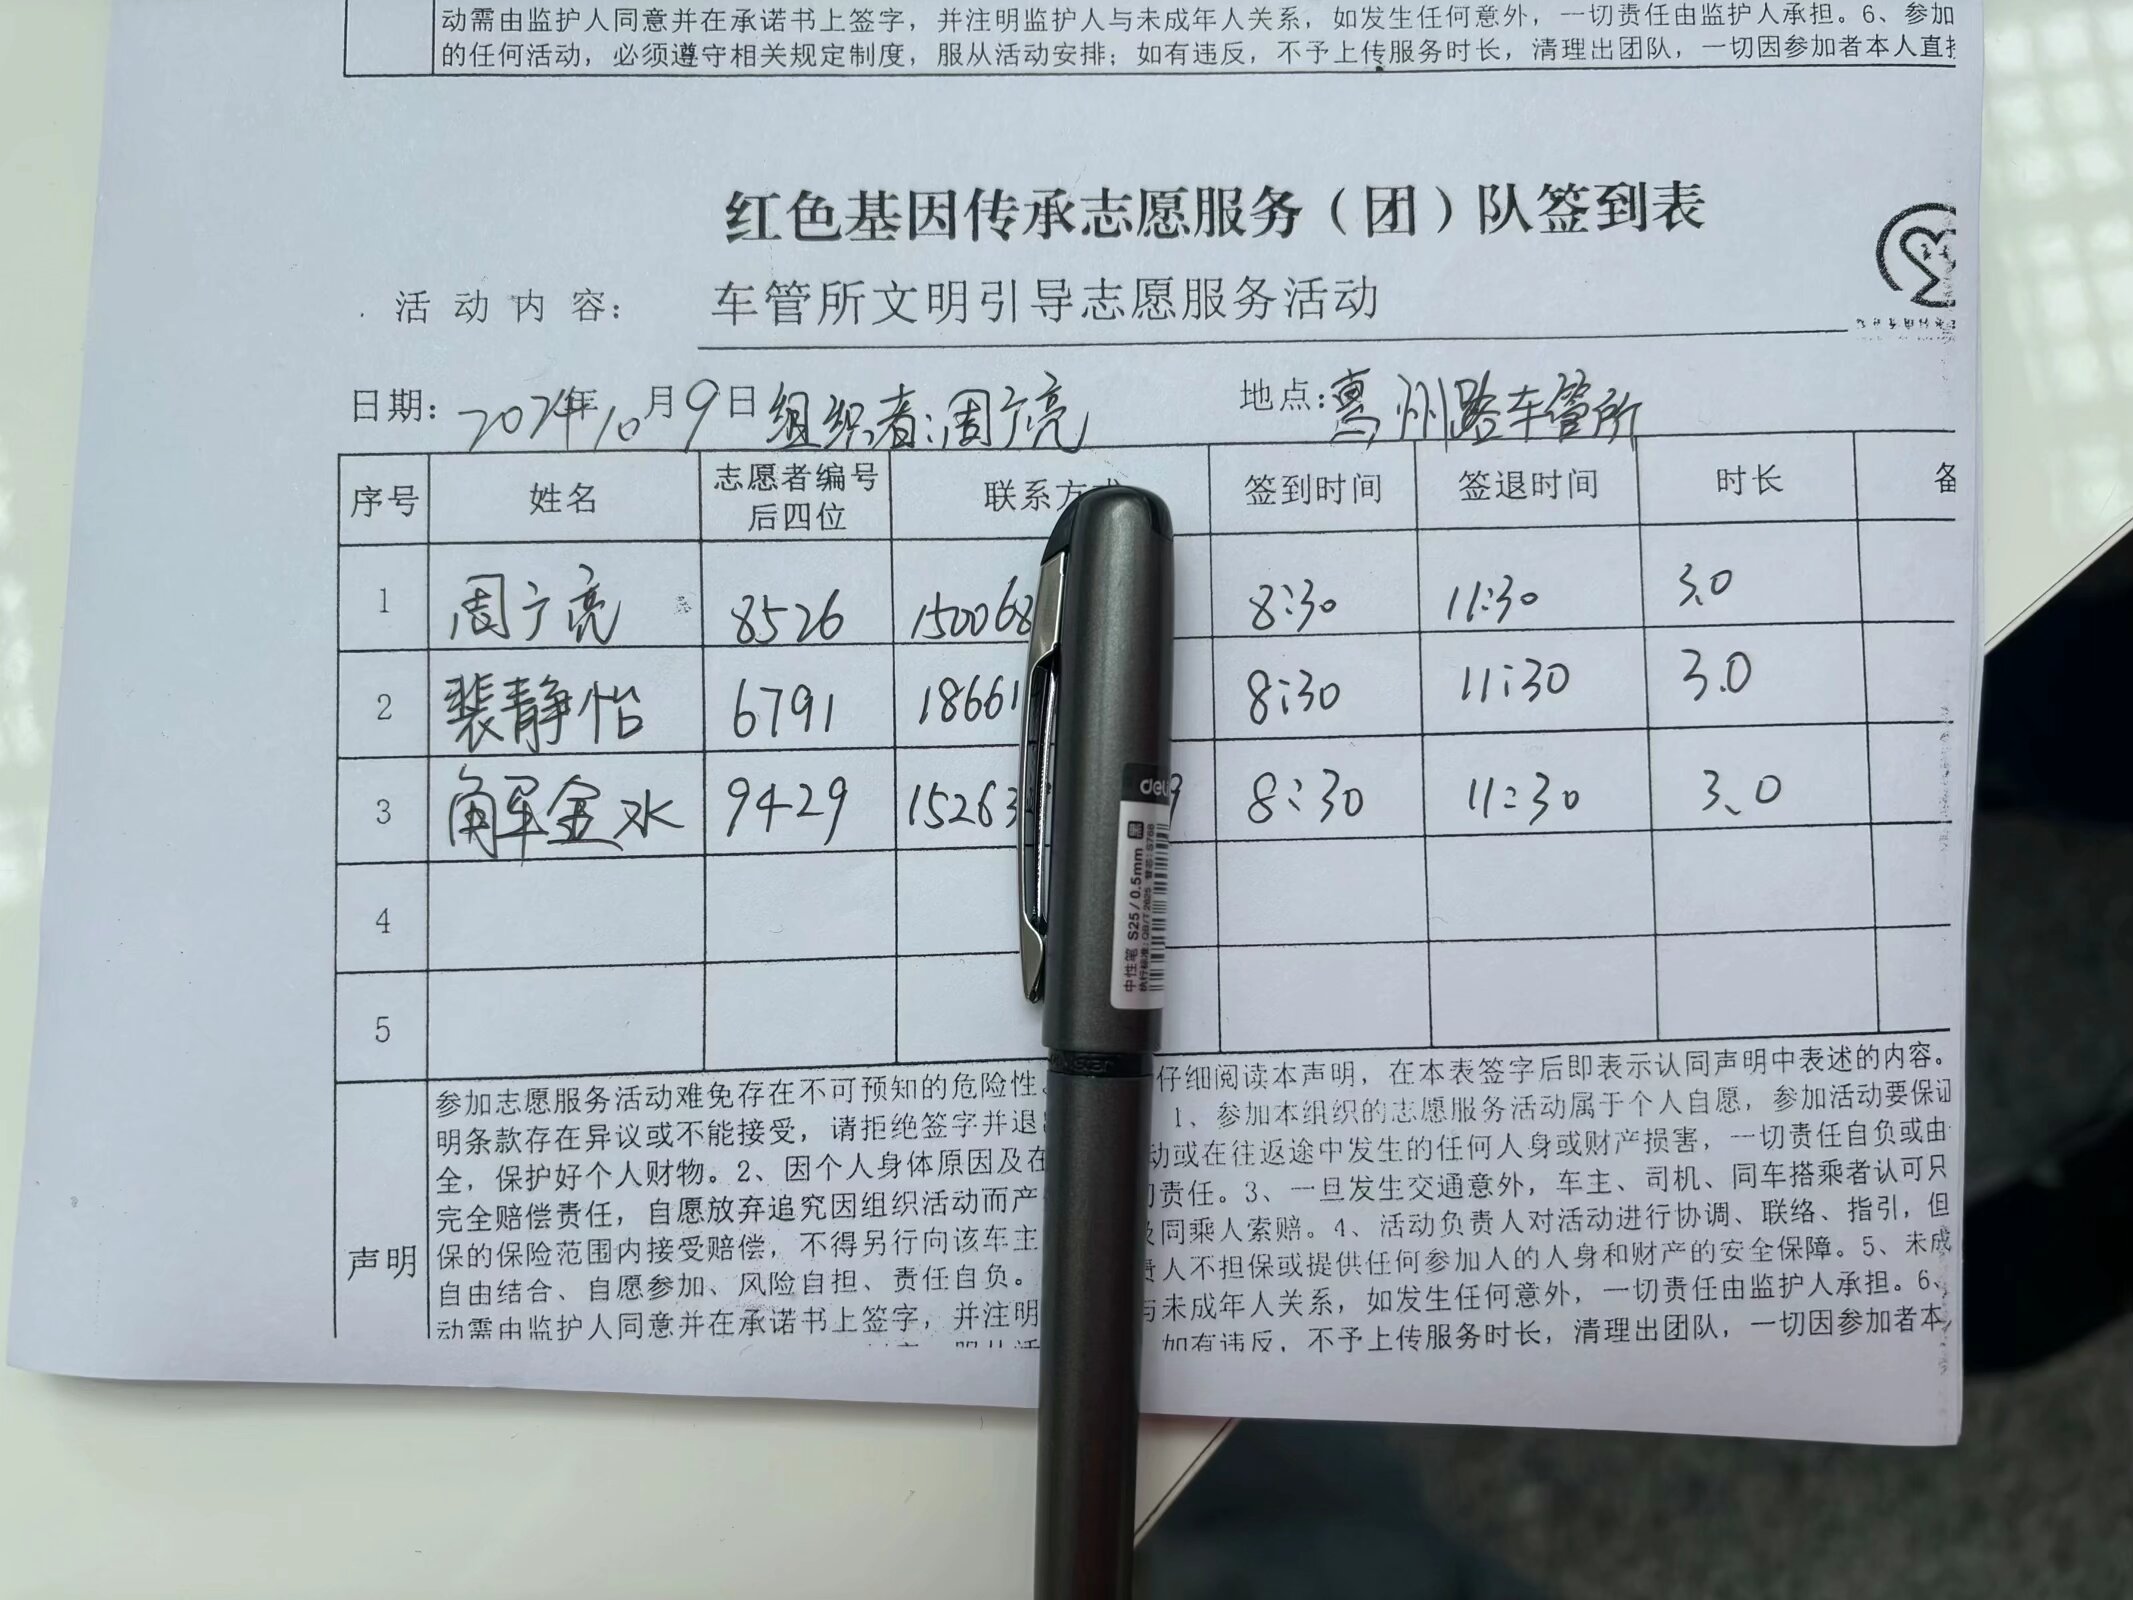 动需由监护人同意并在承诺书上签字，并注明监护人与未成年人关系，如发生任何意外，一切责任由监护人承担。6、参加
的任何活动，必须遵守相关规定制度，服从活动安排；如有违反，不予上传服务时长，清理出团队，一切因参加者本人直
红色基因传承志愿服务（团）队签到表
活动内容： 车管所文明引导志愿服务活动
日期：2024年10月9日 组织者：周广亮 地点：惠州路车管所
序号 姓名 志愿者编号后四位 联系方式 签到时间 签退时间 时长 备
1 周广亮 8526 150068 8:30 11:30 3.0
2 裴静怡 6791 18661 8:30 11:30 3.0
3 解金水 9429 15263 9 8:30 11:30 3.0
4
5
声明
参加志愿服务活动难免存在不可预知的危险性。 仔细阅读本声明，在本表签字后即表示认同声明中表述的内容。
明条款存在异议或不能接受，请拒绝签字并退 1、参加本组织的志愿服务活动属于个人自愿，参加活动要保证
全，保护好个人财物。2、因个人身体原因及在 动或在往返途中发生的任何人身或财产损害，一切责任自负或由
完全赔偿责任，自愿放弃追究因组织活动而产 责任。3、一旦发生交通意外，车主、司机、同车搭乘者认可只
保的保险范围内接受赔偿，不得另行向该车主 及同乘人索赔。4、活动负责人对活动进行协调、联络、指引，但
自由结合、自愿参加、风险自担、责任自负。 责人不担保或提供任何参加人的人身和财产的安全保障。5、未成
动需由监护人同意并在承诺书上签字，并注明 与未成年人关系，如发生任何意外，一切责任由监护人承担。6、
如有违反，不予上传服务时长，清理出团队，一切因参加者本
deli
中性笔 S25/0.5mm 黑
执行标准：QB/T 2625 替芯：S766